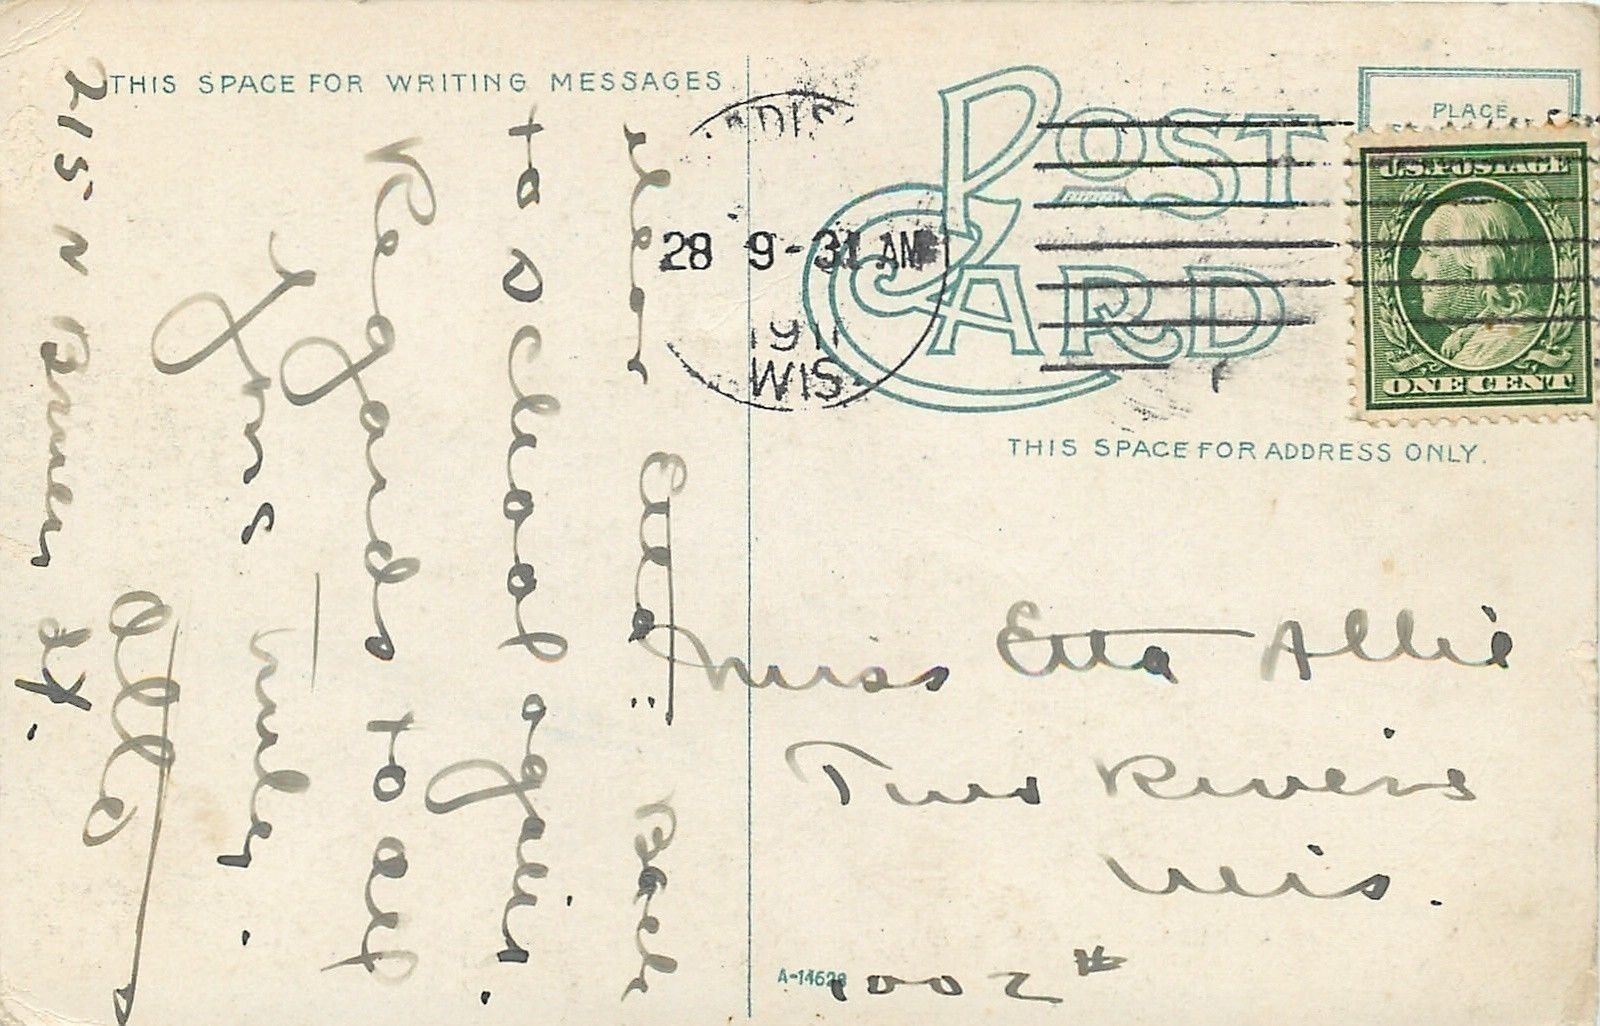 THIS SPACE FOR WRITING MESSAGES
Dear Etta: Back
to school again.
Regards to all
Yours
215 N
St.
POST CARD
PLACE
U.S. POSTAGE
ONE CENT
28 9-31 AM
1911
WIS.
THIS SPACE FOR ADDRESS ONLY.
Miss Etta Allie
Two Rivers
Wis.
A-14628
1002 #